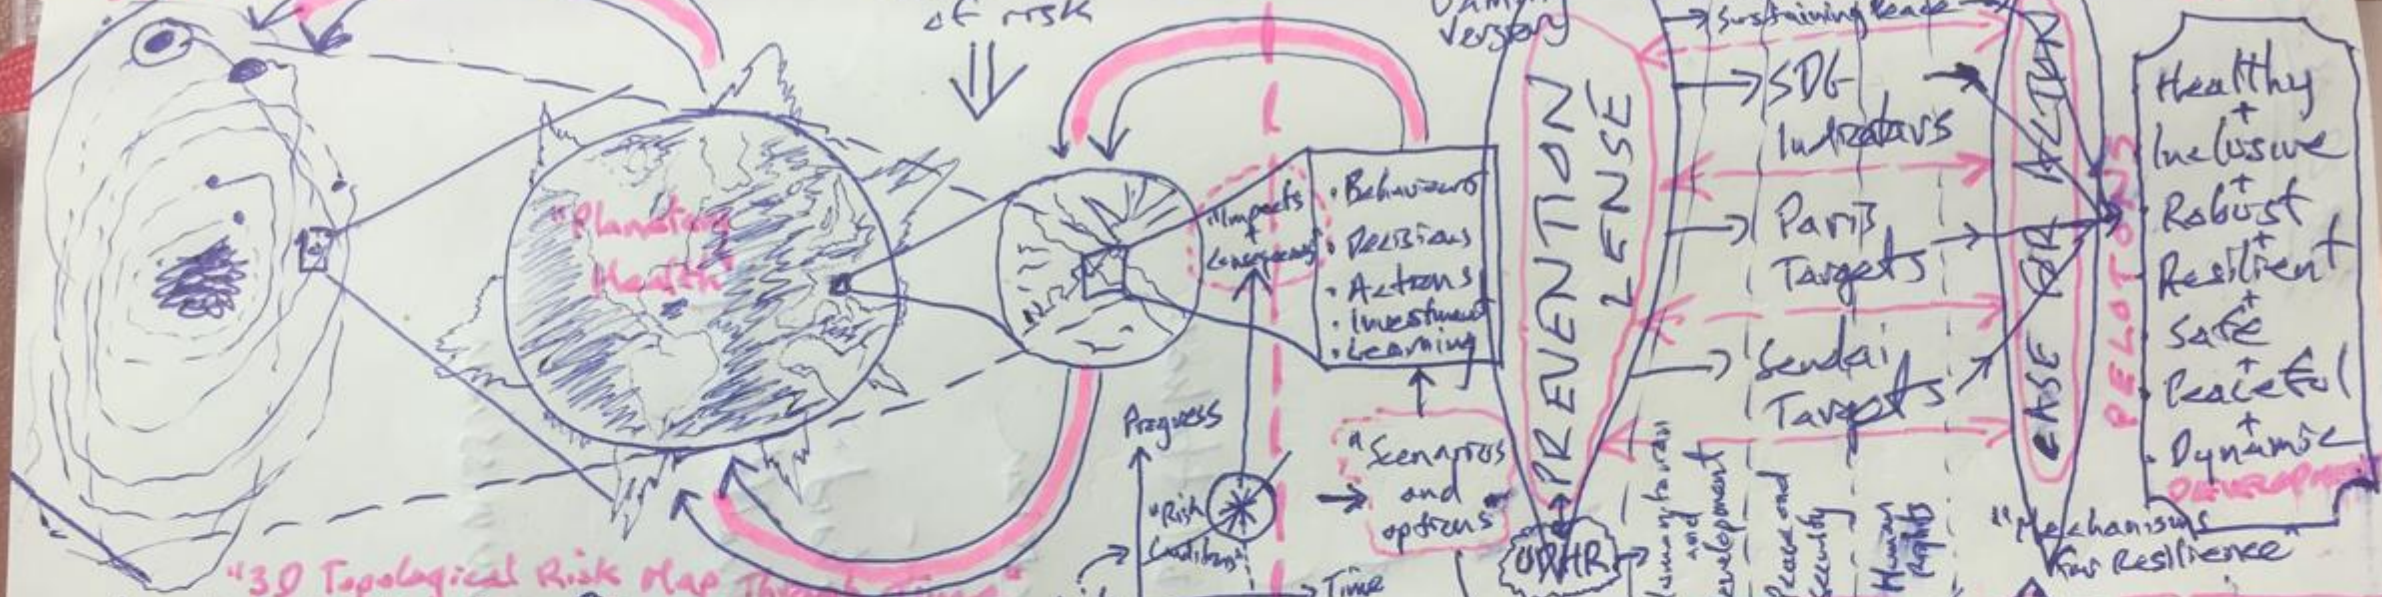 of risk
"Planetary
Health"
"3D Topological Risk Map Through Time"
"Impacts
+
Consequences"
• Behaviours
• Decisions
• Actions
• Investment
• Learning
Progress
"Risk
Conditions"
Time
"Scenarios
and
options"
PREVENTION
LENSE
UDHR
Sustaining Peace
SDG
Indicators
Paris
Targets
Sendai
Targets
Humanitarian
and
Development
Peace and
Security
Human
Rights
CASE FOR ACTION
PELOTONS
Healthy
+
Inclusive
+
Robust
+
Resilient
+
Safe
+
Peaceful
+
Dynamic
DEVELOPMENT
"Mechanisms
for Resilience"